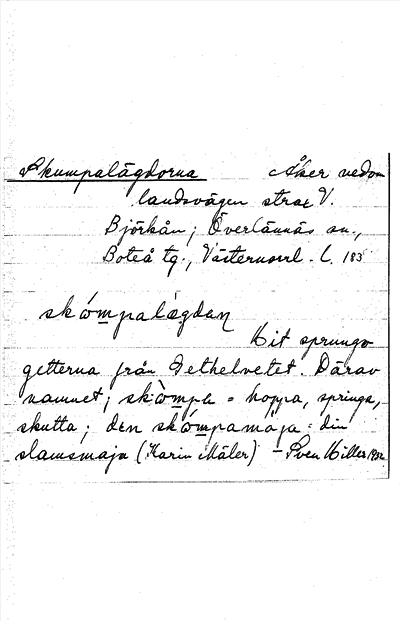 Skumpalägdorna Åker nedom
landsvägen strax V.
Björkån; Överlännäs sn.,
Boteå tg., Västernorrl. l. 183
skómpalägdan
Hit sprungo
getterna från Gethelvetet. Därav
namnet; skòmpa = hoppa, springa,
skutta; den skómpamaja = din
slamsmaja (Karin Mäler) – Sven Hiller 1932